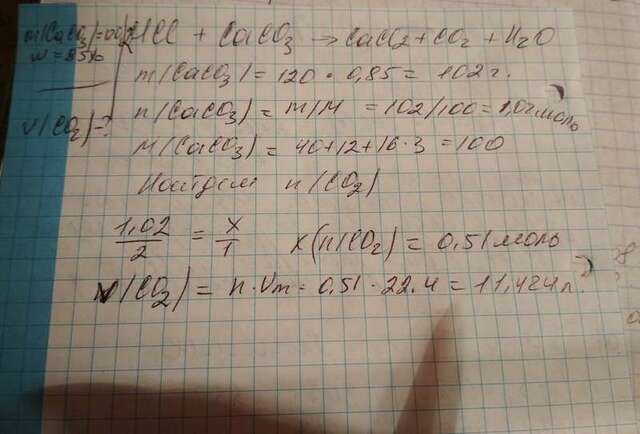 2HCl + CaCO3 → CaCl2 + CO2 + H2O
w = 85%
m(CaCO3) = 120 · 0,85 = 102 г.
V(CO2) = ?
n(CaCO3) = m/M = 102/100 = 1,02 моль
M(CaCO3) = 40+12+16·3 = 100
Найдем n(CO2)
1,02/2 = x/1 x(n(CO2) = 0,51 моль
V(CO2) = n · Vm = 0,51 · 22.4 = 11,424 л